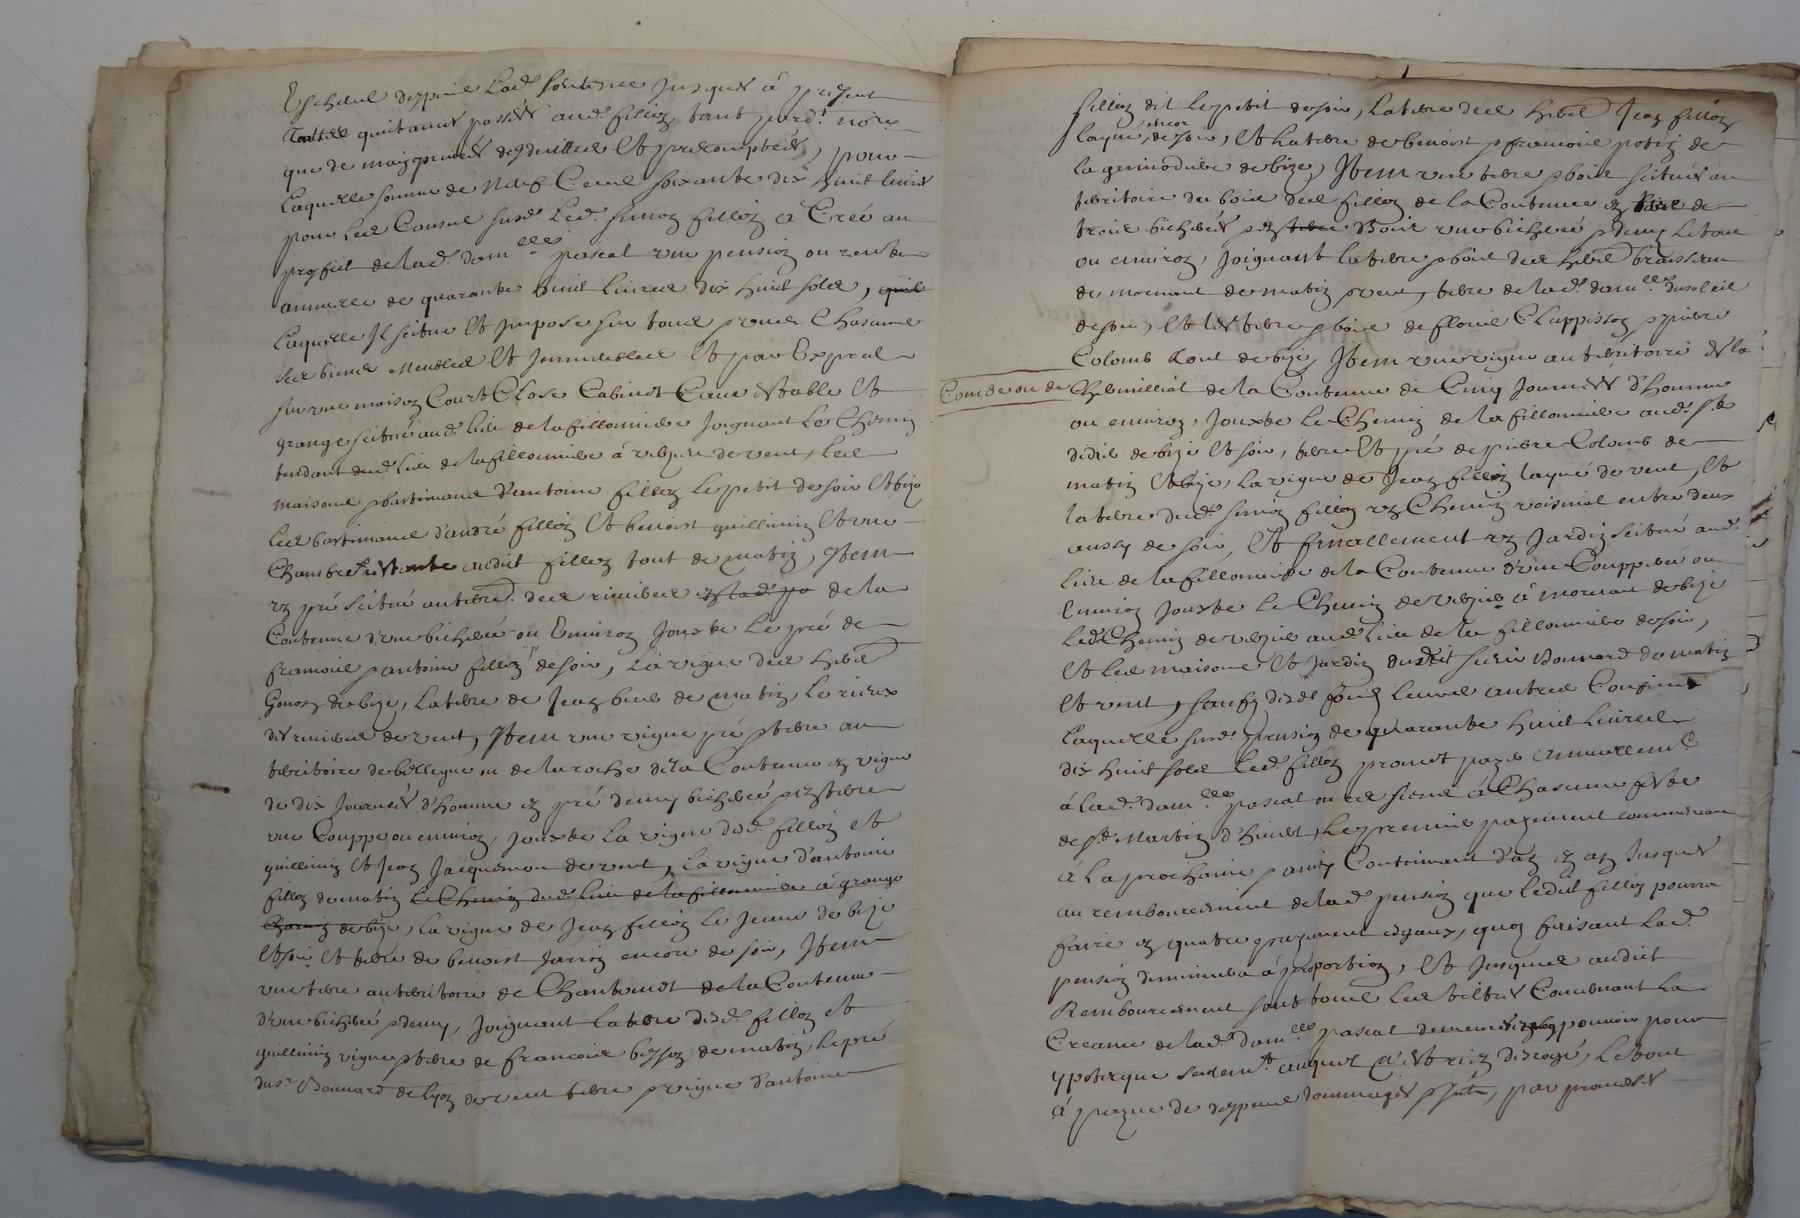 Escheue despuis lad. sentence jusques à present
touttes quitances passées aud. fillion, tant pard.t no.re
que de main privée desduittes et precomptées, pour
laquelle somme de Neuf Cens soixante dix huict livres
pour les Causes susd. led. simon fillion à Creé au
proffict de lad. dam.lle pascal une pension ou rente
annuelle de quarante huict livres dix huict sols,
laquelle il scitue et impose sur tous et un Chascuns
ses biens Meubles et Immeubles et par Exprès
sur une maison Court Close Cabinet Cave estable et
grange scitué aud. lieu de la fillonniere Joignant le Chemin
tendant dud. lieu de la fillonniere à de vent, les
maisons et bastimans d'antoine fillion le petit de soir et bize
les bastimans d'andré fillion et benoist guillimin et une
Chambre restante audict fillion tout de matin, Item
un pré scitué au terr.e des rivieres de la
Contenue d'une bicherée ou Environ Jouxte le pré de
francois et antoine fillion de soir, la vigne des heres
Gonon de bize, la terre de Jean de matin, le rieux
des rivieres de vent, Item une vigne pré et terre au
territoire de bellegue ou de la roche de la Contenue en vigne
de dix Journées d'homme en pré demy bicherée et en terre
une Couppe ou environ, jouxte la vigne desd. fillion et
guillimin et Jean Jacquemon de vent, la vigne d'antoine
fillion de matin le Chemin dud. lieu de la fillonniere à grange
de bize, la vigne de Jean fillion le Jeune de bize
et soir et terre de benoist Jarron encore de soir, Item
une terre au territoire de Chantenot de la Contenue
d'une bicherée et demy, Joignant la terre desd. fillion et
guillimin vigne et terre de francois besson de matin, le pré
du s.r Bonnard de lyon de vent terre et vigne d'antoine
fillion dit le petit de soir, la terre des heres Jean fillion
laqué, encor de soir, et la terre de benoist et francois potin de
la de bize, Item une terre et bois scitués au
territoire du bois des fillion de la Contenue en terre de
trois bicherées et en bois une bicherée et demy le tout
ou environ, Joignant la terre et bois des heres
de mornant de matin et vent, terre de lad. dam.lle du soleil
de soir, et les terre et bois de florie Clappisson et pierre
Colomb tout de bize, Item une vigne au territoire de la
Combe ou de
Chermilliat de la Contenue de Cinq Journées d'homme
ou environ, Jouxte le Chemin de la fillonniere aud. s.t
didier de bize et soir, terre et pré de pierre Colomb de
matin et bize, la vigne de Jean fillion laqué de vent, et
la terre dud. simon fillion un Chemin voisinal entre deux
aussy de soir, et finallement un Jardin scitué aud.
lieu de la fillonniere de la Contenue d'une Couppée ou
Environ Jouxte le Chemin de à mornant de bize
led. Chemin de aud. lieu de la fillonniere de soir,
et les maisons et Jardin dudit sieur Bonnard de matin
et vent, sauf desd. fonds leurs autres Confins
Laquelle susd. pension de quarante huict livres
dix huict sols led. fillion promet payer annuellem.t
à lad. dam.lle pascal ou es siens à Chascune feste
de s.t Martin d'hivert, le premier payement commenceant
à la prochaine et ainsy Continuant d'an en an Jusques
au remboursement de lad. pension que ledict fillion pourra
faire en quatre payement esgaux, quoy faisant lad.
pension diminuera à proportion, et jusques audict
Remboursement sont tous les tiltres Concernant la
Creance de lad. dam.lle pascal demeurés pouvoir pour
ypoteque seulem.t auquel n'est rien desrogé, le tout
à payne de despens dommages et Ints, par promesses